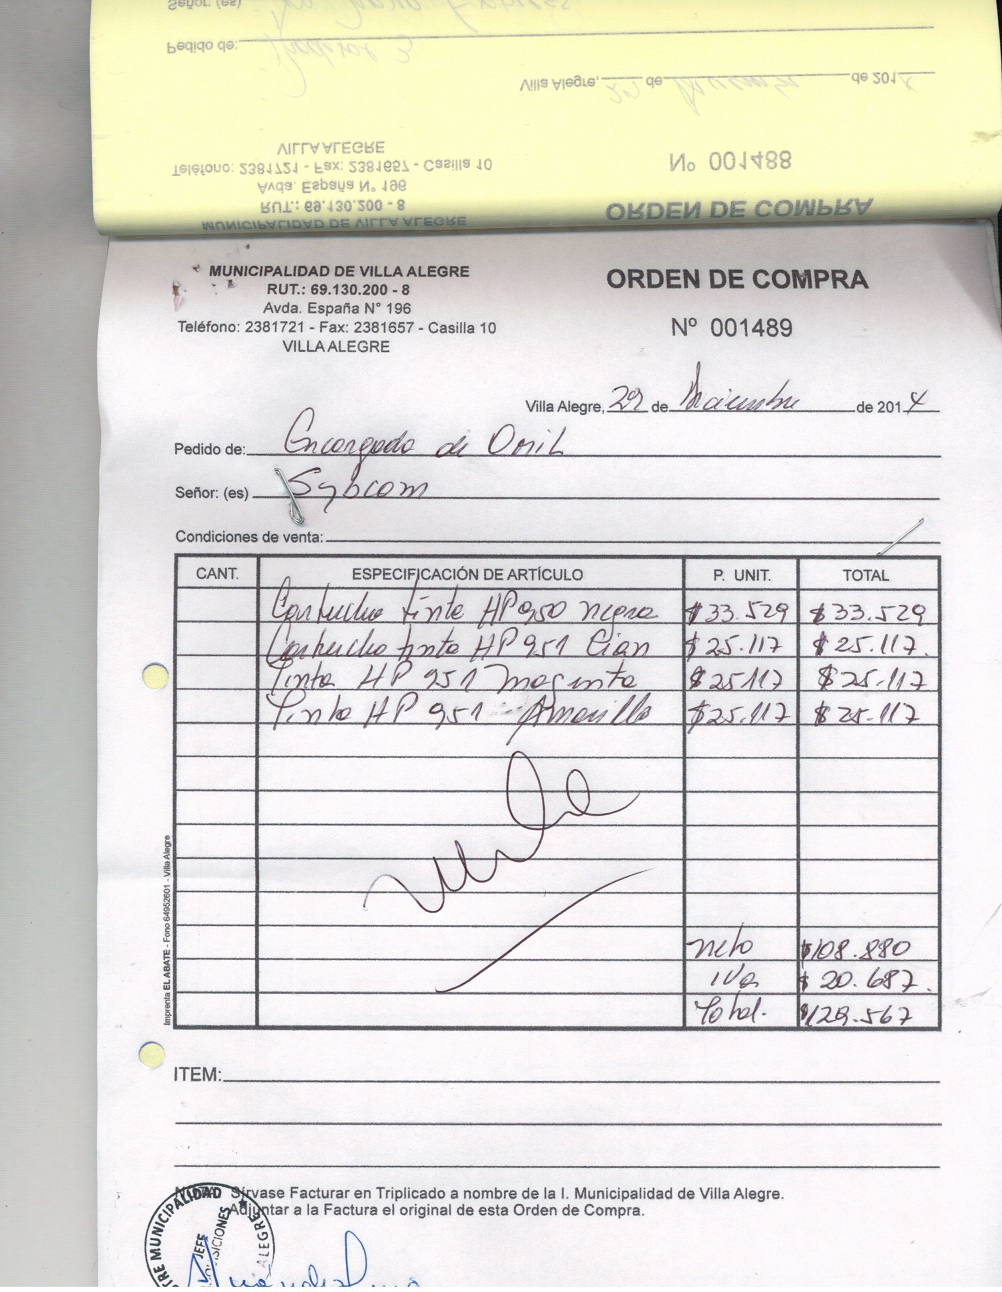 Señor: (es)
Pedido de:
Villa Alegre, de de 201
VILLA ALEGRE
Teléfono: 2381721 - Fax: 2381657 - Casilla 10
Nº 001488
Avda. España N° 196
RUT.: 69.130.200 - 8
ORDEN DE COMPRA
MUNICIPALIDAD DE VILLA ALEGRE
MUNICIPALIDAD DE VILLA ALEGRE
RUT.: 69.130.200 - 8
Avda. España N° 196
Teléfono: 2381721 - Fax: 2381657 - Casilla 10
VILLA ALEGRE
ORDEN DE COMPRA
Nº 001489
Villa Alegre, 29 de Diciembre de 2014
Pedido de: Encargado de Omil
Señor: (es) Sybcom
Condiciones de venta:
CANT. ESPECIFICACIÓN DE ARTÍCULO P. UNIT. TOTAL
Cartucho tinta HP 950 negra $33.529 $33.529
Cartucho tinta HP 951 Cian $25.117 $25.117.
Tinta HP 951 Maginta $25117 $25.117
Tinta HP 951 Amarillo $25.117 $25.117
neto $108.880
iva $20.687.
Total. $129.567
Imprenta EL ABATE - Fono 64952601 - Villa Alegre
ITEM:
Sírvase Facturar en Triplicado a nombre de la I. Municipalidad de Villa Alegre.
Adjuntar a la Factura el original de esta Orden de Compra.
MUNICIPALIDAD
JEFE
ALEGRE